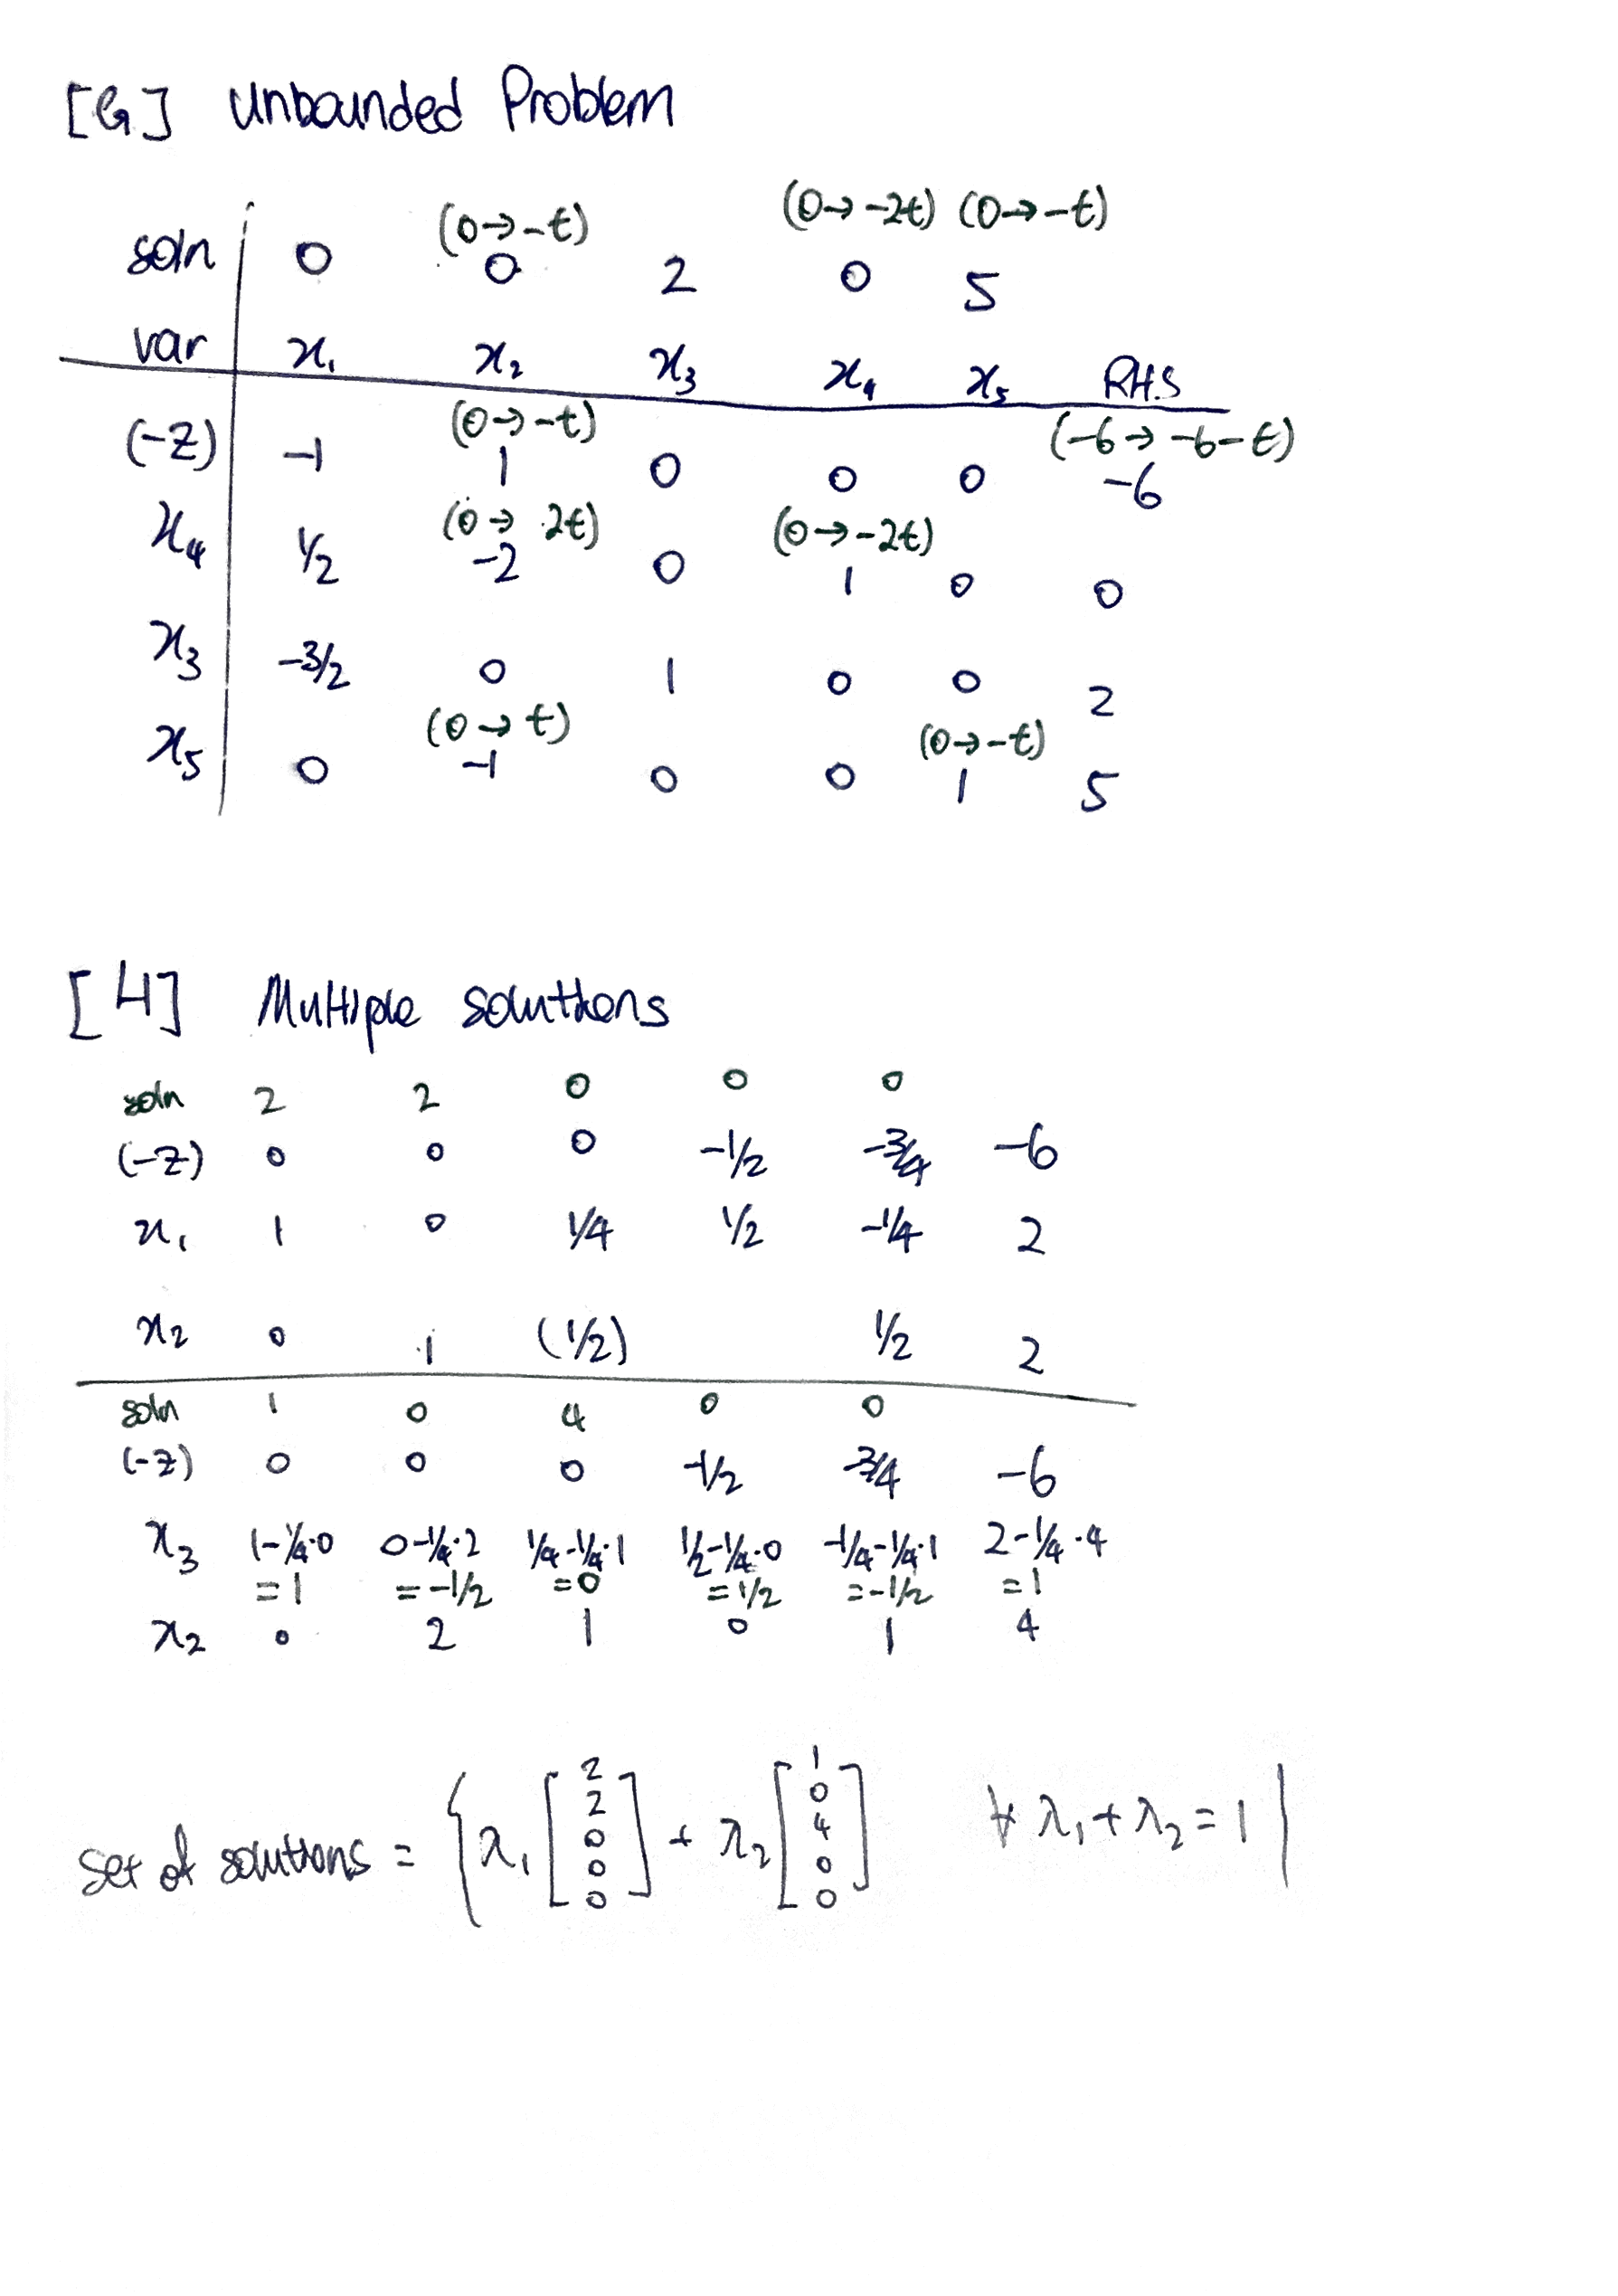 [G] Unbounded Problem
(0→-t) (0→-2t) (0→-t)
soln 0 0 2 0 5
var x₁ x₂ x₃ x₄ x₅ RHS
(0→-t) (-6→-6-t)
(-z) -1 1 0 0 0 -6
(0→ 2t) (0→-2t)
x₄ 1/2 -2 0 1 0 0
x₃ -3/2 0 1 0 0 2
(0→t) (0→-t)
x₅ 0 -1 0 0 1 5
[H] Multiple solutions
soln 2 2 0 0 0
(-z) 0 0 0 -1/2 -3/4 -6
x₁ 1 0 1/4 1/2 -1/4 2
x₂ 0 1 (1/2) 1/2 2
soln 1 0 4 0 0
(-z) 0 0 0 -1/2 -3/4 -6
x₃ 1-1/4·0 0-1/4·2 1/4-1/4·1 1/2-1/4·0 -1/4-1/4·1 2-1/4·4
=1 =-1/2 =0 =1/2 =-1/2 =1
x₂ 0 2 1 0 1 4
set of solutions = { λ₁ [2 2 0 0 0] + λ₂ [1 0 4 0 0] ∀ λ₁+λ₂=1 |